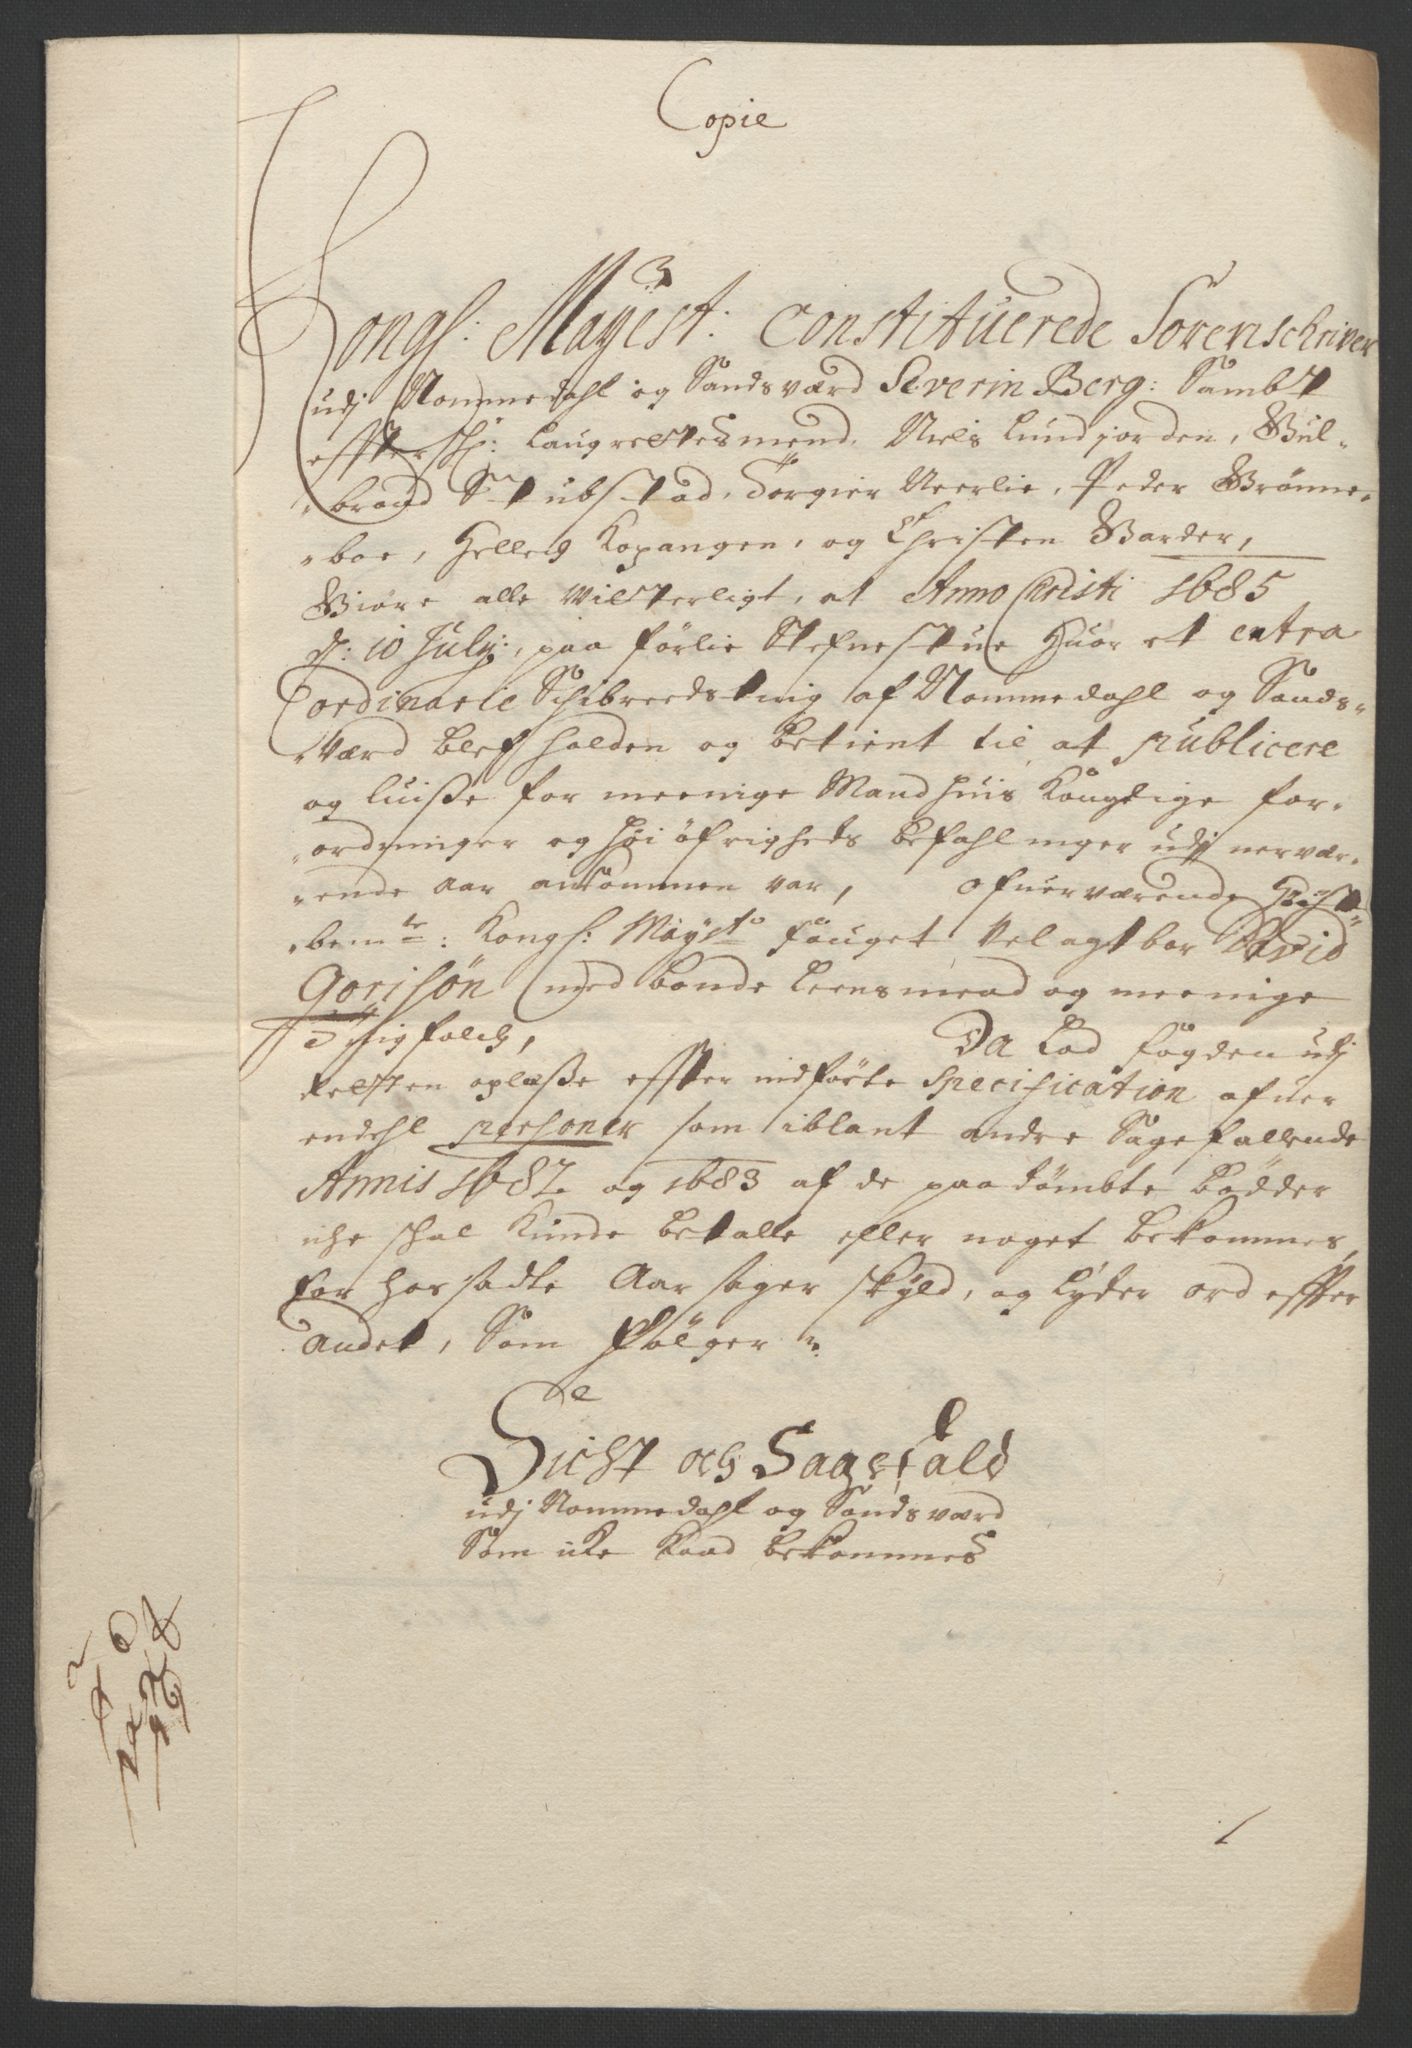 Copie
Kongl: Mayest: Constituerede Sorenschriver
udj Nommedahl og Sandsværd Severin Berg: Sambt
effterschr: Laugrettesmend, Niels Lundjorden, Gul-
brand Stubstad, Torgier Neerlie, Peder Brønne-
boe, Helleg Kopangen, og Christen Garder,
Giøre alle Vitterligt, at Anno Christi 1685
d: 10 July:, paa førlie Stefnestue Huor et extra
ordinarie Schibreedsting af Nommedahl og Sands-
værd blef holden og betient til at publicere
og luisse for meenige Mand huis Konglige for-
ordninger og høi øfrigheds befahlinger udj nervær-
ende aar ankommen var, ofuerværende Høist-
bemte: Kongl: Mayst: fouget Velagtbar David
Gorisøn med bonde Leensmend og meenige
Tingfolch, Da Lod fogden udj
Retten oplæsse effter indførte Specification ofuer
endehl personer som iblant andre Sagefallende
Annis 1682 og 1683 af de paadømbte bødder
iche schal kunde betalle eller noget bekommes,
for hossadte Aarsager skyld, og Lyder ord effter
andet, Som følger
Sicht och Sagefald
udj Nommedahl og Sandsværd
Som icke kand bekommes
1